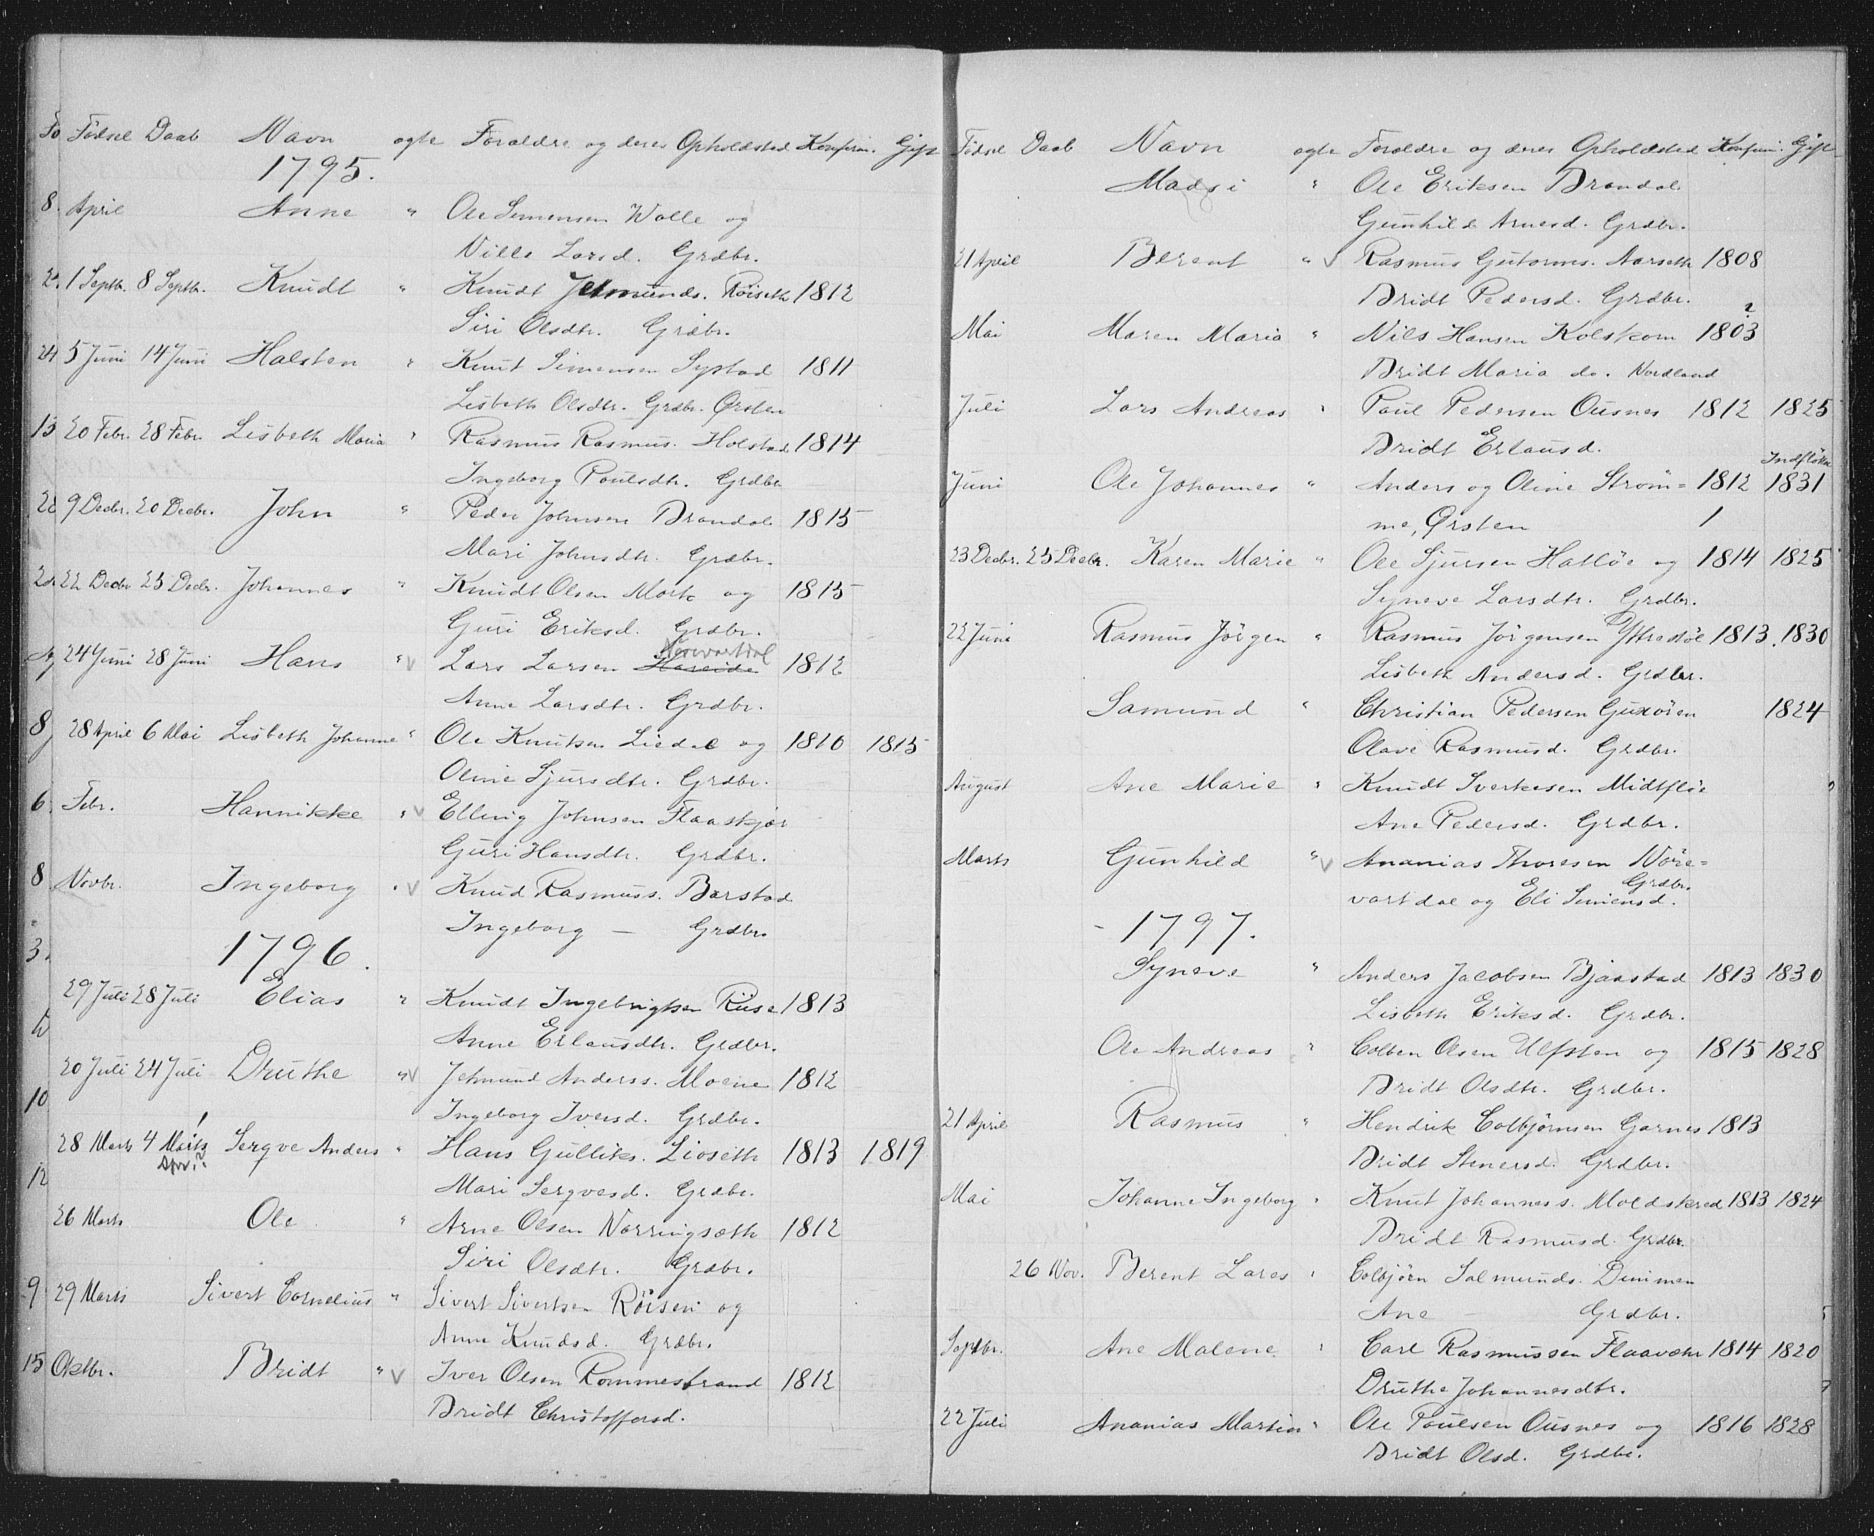 Fødsel Daab Navn ægte Forældre og deres Opholdsted Konfirm. Gift
1795.
April Anne " Ole Simensen Walle og
Nille Larsd. Grdbr.
1 Septb. 8 Septb. Knudt " Knudt Jetmunds. Röiseth 1812
Siri Olsdtr. Grdbr.
5 Juni 14 Juni Halsten " Knut Simensen Systad 1811
Lisbeth Olsdtr. Grdbr. Ørsten
20 Febr. 28 Febr. Lisbeth Maria " Rasmus Rasmus. Holstad 1814
Ingeborg Poulsdtr. Grdbr
9 Decbr. 20 Decbr. John " Peder Johnsen Brandal 1815
Mari Johnsdtr. Grdbr.
22 Decbr 25 Decbr. Johannes " Knudt Olsen Mork og 1815
Guri Eriksd. Grdbr.
24 Juni 28 Juni Hans " v Lars Larsen Hareide Nörevartdal 1812
Anne Larsdtr. Grdbr.
28 April 6 Mai Lisbeth Johanne " Ole Knutsen Liedal og 1810 1815
Oline Sjursdtr. Grdbr.
Febr. Hannikke " v Elling Johnsen Flaaskjær
Guri Hansdtr. Grdbr.
Novbr. Ingeborg " v Knud Rasmuss. Barstad
Ingeborg — Grdbr.
1796.
29 Juli 28 Juli Elias " Knudt Ingebrigtsen Riise 1813
Anne Erlandsdtr. Grdbr.
20 Juli 24 Juli Druthe " v Jetmund Anderss. Moene 1812
Ingeborg Iversd. Grdbr.
28 Marts 4 Marts Sergve Anders " Hans Gulliks. Lioseth 1813 1819
April? Mari Sergvesd. Grdbr.
26 Marts Ole " Arne Olsen Norringsæth 1812
Siri Olsdtr. Grdbr.
29 Marts Sivert Cornelius " Sivert Sivertsen Röisen og
Anne Knudsd. Grdbr.
Oktbr. Bridt " v Iver Olsen Rommestrand 1812
Bridt Christoffersd.
Fødsel Daab Navn ægte Forældre og deres Opholdsted Konfirm. Gift
Madsi " Ole Eriksen Brandal
Gunhild Arnesd. Grdbr.
21 April Berent " v Rasmus Gutorms. Aarseth 1808
Bridt Pedersd. Grdbr.
Mai Maren Maria " Nils Hansen Kolskom 1803 ?
Bridt Maria do. Nordland
Juli Lars Andreas " Paul Pedersen Ousnes 1812 1825
Bridt Erlansd.
Juni Ole Johannes " Anders og Oline Ström= 1812 Indfløtte 1831
me, Ørsten 1
23 Decbr. 25 Decbr. Karen Marie " Ole Sjursen Hatløe og 1814 1825
Syneve Larsdtr. Grdbr.
22 Juni Rasmus Jörgen " Rasmus Jörgensen Yttrefløe 1813 1830
Lisbeth Andersd. Grdbr.
Samund " Christian Pedersen Guxören 1824
Olave Rasmusd. Grdbr.
August Ane Marie " Knudt Sverkesen Midtfløe
Ane Pedersd. Grdbr.
Marts Gunhild " v Ananias Thoresen Nöre=
vartdal og Eli Simensd. Grdbr.
- 1797.
Syneve " Anders Jacobsen Bjaastad 1813 1830
Lisbeth Eriksd. Grdbr.
Ole Andreas " Colben Olsen Ulfsten og 1815 1828
Bridt Olsdtr. Grdbr.
21 April Rasmus " Hendrik Colbjørnsen Garnes 1813
Bridt Stenersd. Grdbr.
Mai Johanne Ingeborg " Knut Johanness. Moldskred 1813 1824
Bridt Rasmusd. Grdbr.
26 Nov. Berent Lares " Colbjörn Salmunds. Dimmen
Ane — Grdbr.
Septbr. Ane Malene " Carl Rasmussen Flaavær 1814 1820
Druthe Johannesdtr.
22 Juli Ananias Martin " Ole Poulsen Ousnes og 1816 1828
Bridt Olsd. Grdbr.